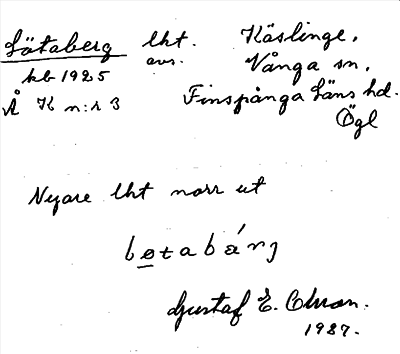 Götaberg lht. Käslinge,
kb 1925 avs. Vånga sn,
Å K n:r 3 Finspånga läns hd.
Ögl
Nyare lht norr ut
Gustaf E. Olson.
1927.